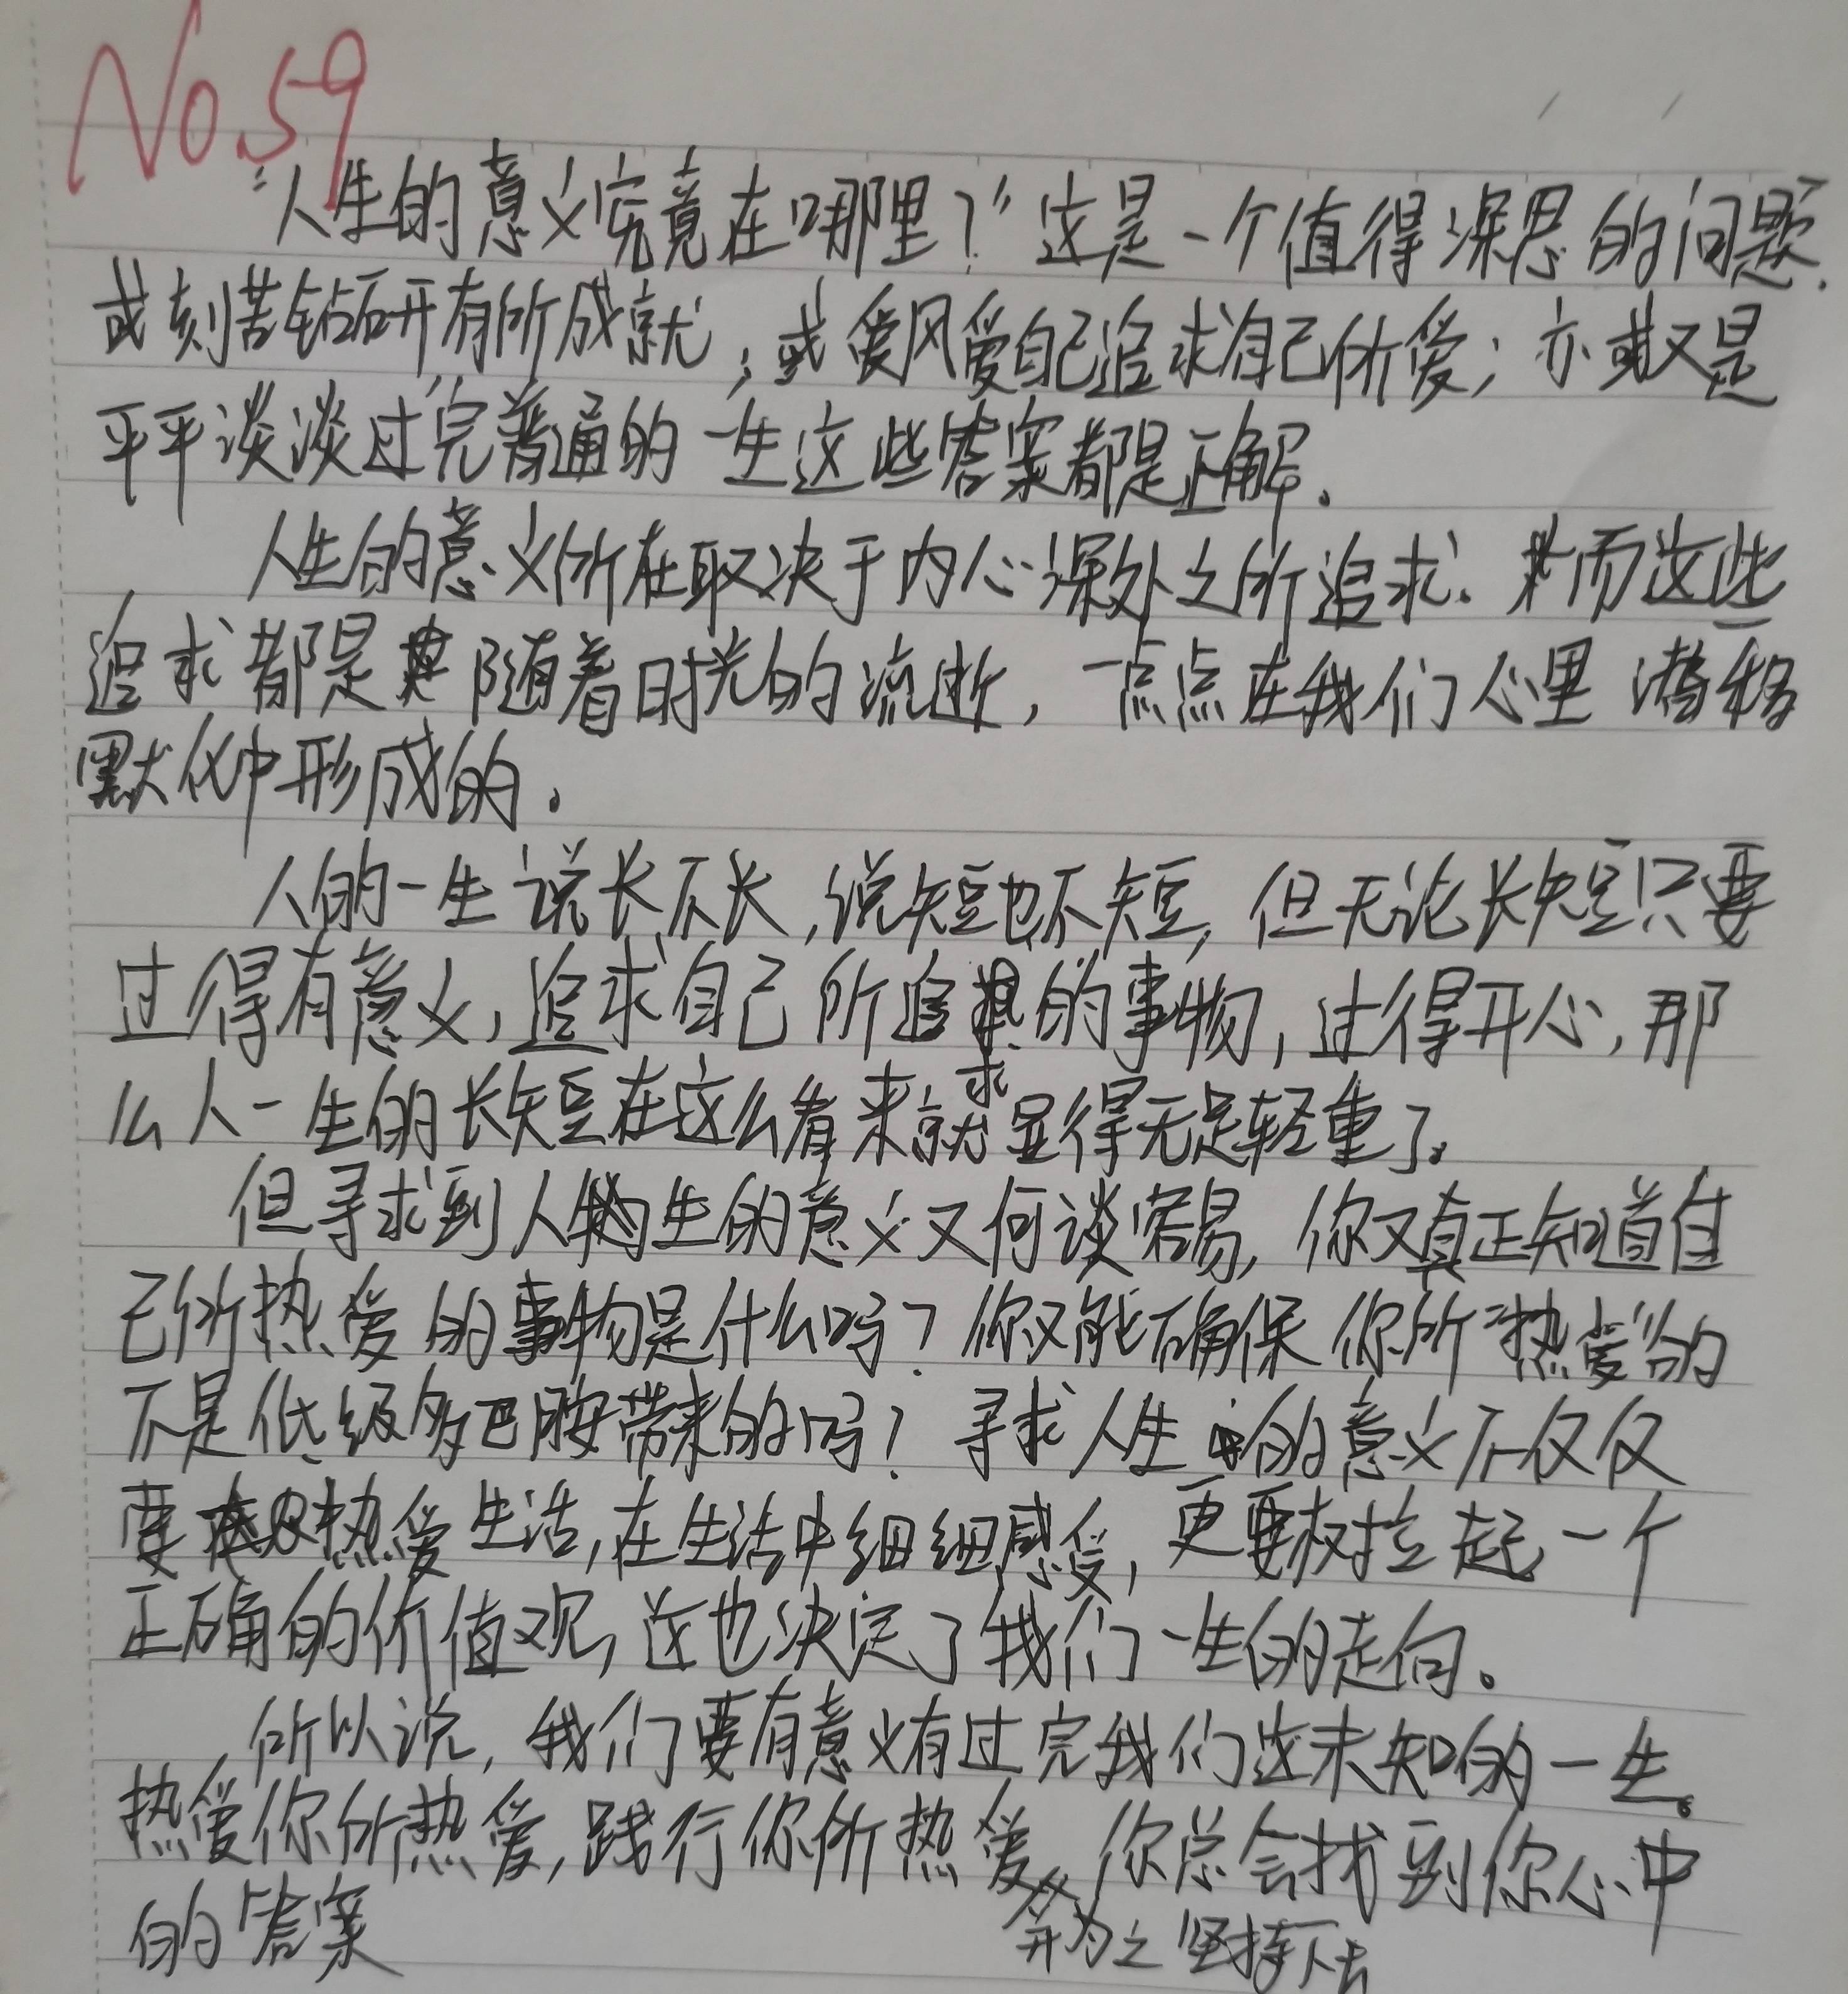 No.59
"人生的意义究竟在哪里?"这是一个值得深思的问题.
或刻苦钻研有所成就;或爱风爱自己追求自己所爱;亦或又是
平平谈淡过完普通的一生这些答案都是正解.
人生的意义所在取决于内心深处之所追求.而这些
追求都是随着时光的流逝,一点点在我们心里潜移
默化中形成的.
人的一生说长不长,说短也不短,但无论长短只要
过得有意义,追求自己所追求的事物,过得开心,那
么人一生的长短在这么看来就显得无足轻重了.
但寻求到人生的意义又何谈容易,你又真正知道自
己所热爱的事物是什么吗?你又能确保你所"热爱"的
不是低级多巴胺带来的吗?寻求人生的意义不仅仅
要热爱生活,在生活中细细感受,更要树立起一个
正确的价值观,这也决定了我们一生的走向。
所以说,我们要有意义有过完我们这未知的一生。
热爱你所热爱,践行你所热爱,并为之坚持下去你总会找到你心中
的答案